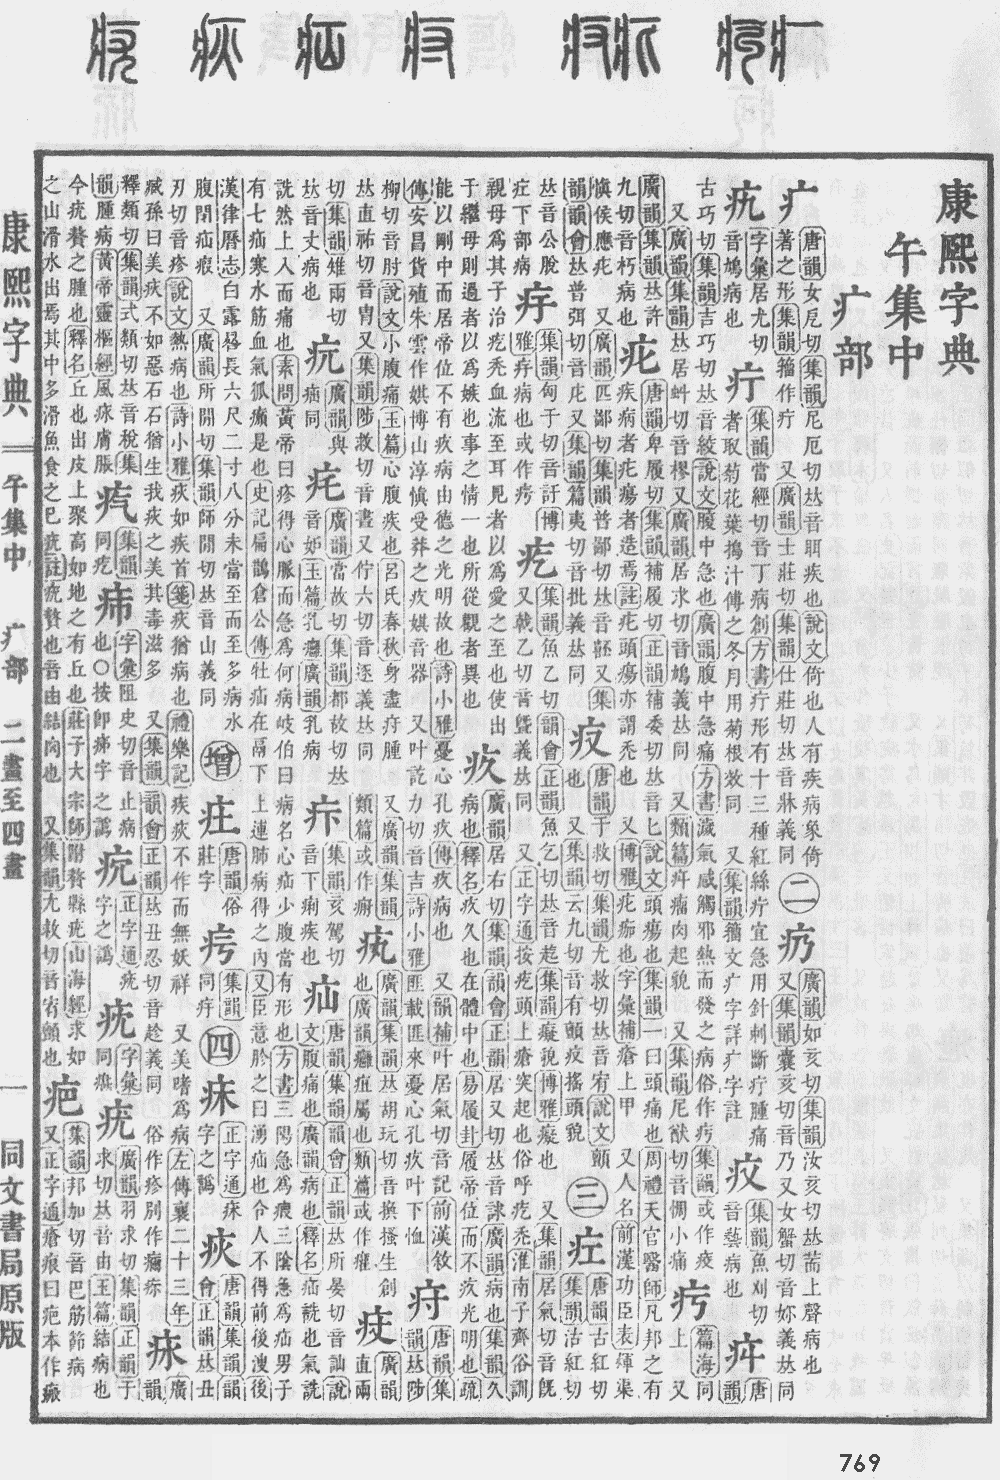 康熙字典
午集中
疒部
疒 唐韻女戹切集韻尼厄切𠀤音聑疾也說文倚也人有疾病象倚著之形集韻籀作疔 又廣韻士莊切集韻仕莊切𠀤音牀義同 二 疓 廣韻如亥切集韻汝亥切𠀤上聲病也 又集韻囊亥切音乃又女蟹切音嬭義𠀤同
字彙居尤切音鳩病也 疔 集韻當經切音丁病創方書疔形有十三種紅絲疔宜急用針刺斷疔腫痛者取菊花葉搗汁傅之冬月用菊根效同 又集韻籀文疒字詳疒字註 集韻魚刈切音藝病也 唐韻
古巧切集韻吉巧切𠀤音絞說文腹中急也廣韻腹中急痛方書濊氣感觸邪熱而發之病俗作疞集韻或作疫 又廣韻集韻𠀤居虯切音樛又廣韻居求切音鳩義𠀤同 又類篇瘤肉起貌 又集韻尼猷切音惆小痛 篇海同上 又
廣韻集韻𠀤許九切音朽病也 疕 唐韻卑履切集韻補履切正韻補委切𠀤音匕說文頭瘍也集韻一曰頭痛也周禮天官醫師凡邦之有疾病者疕瘍者造焉註疕頭瘍亦謂禿也 又博雅疕痂也字彙補瘡上甲 又人名前漢功臣表煇渠
愼侯應疕 又廣韻匹鄙切集韻普鄙切𠀤音嚭又集韻韻會𠀤普弭切音庀又集韻篇夷切音批義𠀤同 唐韻于救切集韻尤救切𠀤音宥說文顫也 又集韻云九切音有顫疫搖頭貌 三 疘 唐韻古紅切集韻沽紅切
𠀤音公脫疘下部病 集韻匈于切音訏博雅病也或作疞 疙 集韻魚乙切韻會正韻魚乞切𠀤音起集韻癡貌博雅癡也 又集韻居氣切音旣又戟乙切音曁義𠀤同 又正字通按疙頭上瘡突起也俗呼疙禿淮南子齊俗訓
視母爲其子治疙禿血流至耳見者以爲愛之至也使出于繼母則過者以爲嫉也事之情一也所從觀者異也 疚 廣韻居右切集韻韻會正韻居又切𠀤音廣韻病也集韻久病也釋名疚久也在體中也易履卦履帝位而不疚光明也疏
能以剛中而居帝位不有疚病由德之光明故也詩小雅憂心孔疚傳疚病也 又韻補叶居氣切音記前漢敘傳安昌貨殖朱雲作娸博山淳愼受莽之疚娸音器 又叶訖力切音吉詩小雅匪載匪來憂心孔疚叶下恤 疛 唐韻集韻𠀤陟
柳切音肘說文小腹痛玉篇心腹疾也呂氏春秋身盡疛腫 又廣韻集韻𠀤直祐切音冑又集韻陟救切音晝又佇六切音逐義𠀤同 類篇或作 廣韻集韻𠀤胡玩切音換搔生創也廣韻癰疽屬也類篇或作 廣韻直兩
切集韻雉兩切𠀤音丈病也 廣韻與痼同 廣韻當故切集韻都故切𠀤音妒玉篇乳癰廣韻乳病 疜 集韻亥駕切音下痢疾也 疝 唐韻集韻韻會正韻𠀤所晏切音訕說文腹痛也廣韻病也釋名疝詵也氣詵
詵然上入而痛也素問黃帝曰疹得心脈而急爲何病岐伯曰病名心疝少腹當有形也方書三陽急爲瘕三陰急爲疝男子有七疝寒水筋血氣狐㿗是也史記扁鵲倉公傳牡疝在鬲下上連肺病得之內又臣意診之曰湧疝也令人不得前後溲後
漢律曆志白露晷長六尺二寸八分未當至而至多病水腹閉疝瘕 又廣韻所閒切集韻師閒切𠀤音山義同 增 疰 唐韻俗莊字 集韻同 四 正字通疾字之譌 疢 唐韻集韻韻會正韻𠀤丑
刃切音疹說文熱病也詩小雅疢如疾首箋疢猶病也禮樂記疾疢不作而無妖祥 又美嗜爲病左傳襄二十三年臧孫曰美疢不如惡石石猶生我疢之美其毒滋多 又集韻韻會正韻𠀤丑忍切音趁義同俗作疹別作 廣韻
釋類切集韻式類切𠀤音稅集韻腫病黃帝靈樞經風膚脹 集韻同疙 字彙阻史切音止病也○按卽字之譌 正字通字之譌 字彙同 疣 廣韻羽求切集韻正韻于求切𠀤音由玉篇結病也
今疣贅之腫也釋名疣丘也出皮上聚高如地之有丘也莊子大宗師附贅縣疣山海經求如之山滑水出焉其中多滑魚食之已疣註疣贅也音由結肉也 又集韻尤救切音宥顫也 疤 集韻邦加切音巴筋節病 又正字通瘡痕曰疤本作瘢
康熙字典 午集中 疒部 二畫至四畫 一 同文書局原版
769